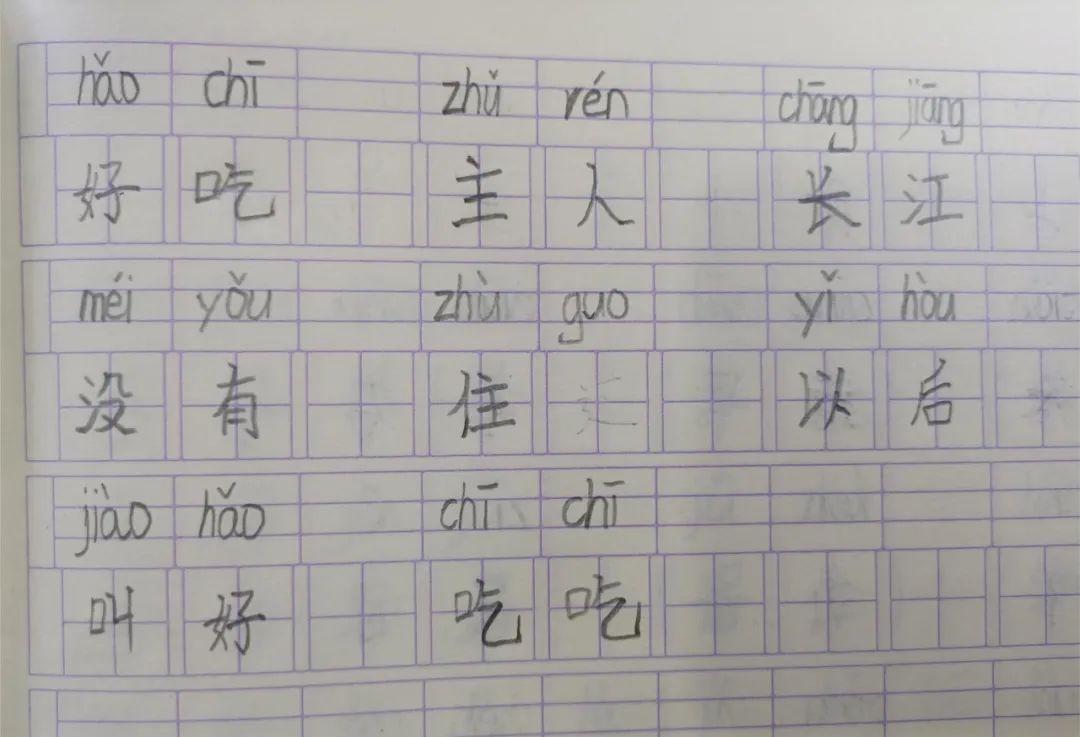 hǎo chī zhǔ rén chāng jiāng
好吃 主人 长江
méi yǒu zhù guo yǐ hòu
没有 住 以后
jiào hǎo chī chī
叫好 吃吃